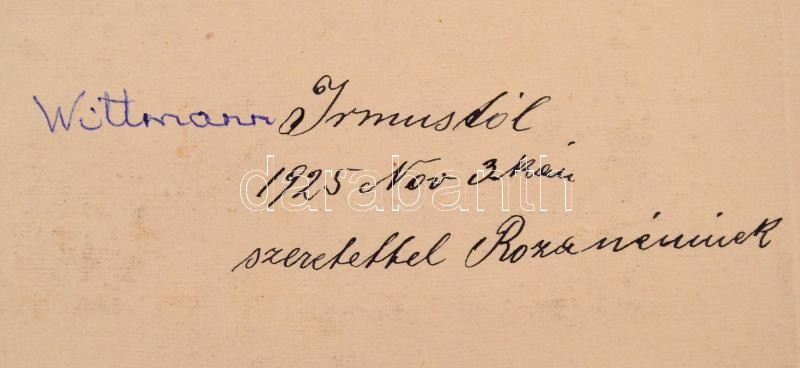 Wittmann Irmustól
1925 Nov 3 kán
szeretettel Roza néninek
darabanth